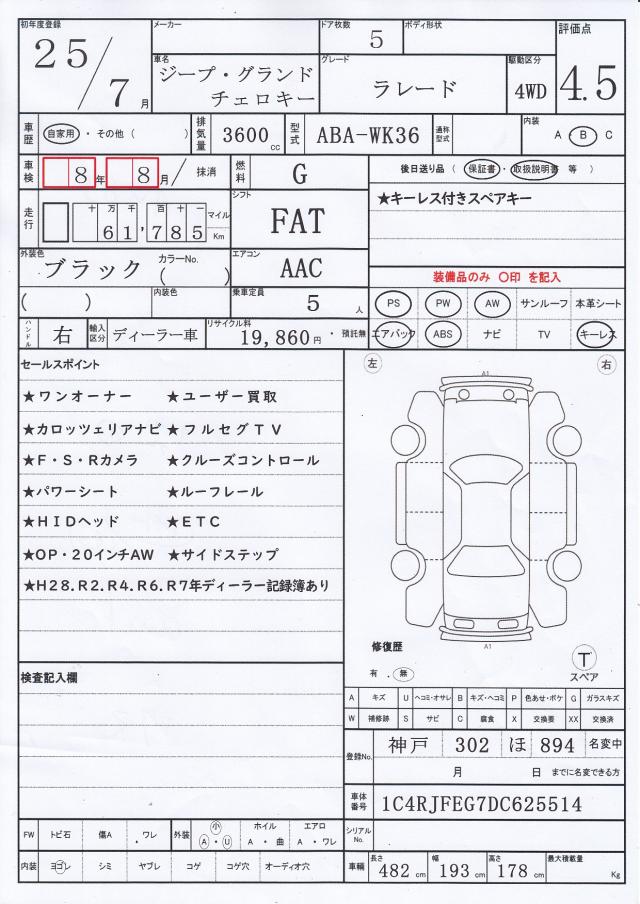 初年度登録 メーカー ドア枚数 ボディ形状 評価点
25/7月 5 4.5
車名 グレード 駆動区分
ジープ・グランド チェロキー ラレード 4WD
車歴 自家用・その他（ ） 排気量 3600cc 型式 ABA-WK36 通称型式 内装 A・B C
車検 8年 8月/ 抹消 燃料 G 後日送り品（ 保証書・取扱説明書 等 ）
走行 十万千百十一 61,785 マイル Km シフト FAT ★キーレス付きスペアキー
外装色 ブラック カラーNo.（ ） エアコン AAC 装備品のみ 〇印 を記入
（ ） 内装色 乗車定員 5人 PS PW AW サンルーフ 本革シート
ハンドル 右 輸入区分 ディーラー車 リサイクル料 19,860円・預託無 エアバック ABS ナビ TV キーレス
セールスポイント 左 右
A1
★ワンオーナー ★ユーザー買取
★カロッツェリアナビ ★フルセグTV
★F・S・Rカメラ ★クルーズコントロール
★パワーシート ★ルーフレール
★HIDヘッド ★ETC
★OP・20インチAW ★サイドステップ
★H28.R2.R4.R6.R7年ディーラー記録簿あり
A1
修復歴
有・無 T
スペア
検査記入欄
A キズ U ヘコミ・オサレ B キズ・ヘコミ P 色あせ・ボケ G ガラスキズ
W 補修跡 S サビ C 腐食 X 交換要 XX 交換済
登録No. 神戸 302 ほ 894 名変中
月 日 までに名変できる方
車体番号 1C4RJFEG7DC625514
FW トビ石 傷A ・ワレ 外装 小 A・U ホイル A・曲 エアロ A・ワレ シリアルNo.
内装 ヨゴレ シミ ヤブレ コゲ コゲ穴 オーディオ穴 車輌 長さ 482cm 幅 193cm 高さ 178cm 最大積載量 Kg